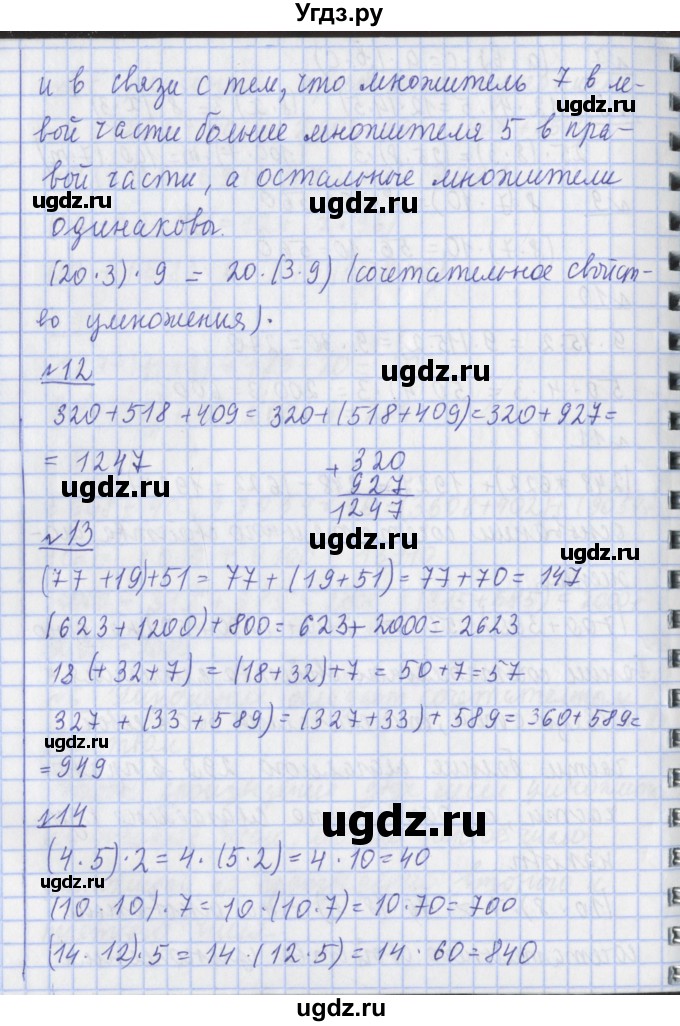 Угдз.ру
и в связи с тем, что множитель 7 в ле-
вой части больше множителя 5 в пра-
вой части, а остальные множители
одинаковы.
(20·3)·9 = 20·(3·9) (сочетательное свойст-
во умножения).
№12
320+518+409=320+(518+409)=320+927=
=1247
+320
927
1247
№13
(77+19)+51=77+(19+51)=77+70=147
(623+1200)+800=623+2000=2623
18(+32+7)=(18+32)+7=50+7=57
327+(33+589)=(327+33)+589=360+589=
=949
№14
(4·5)·2=4·(5·2)=4·10=40
(10·10)·7=10·(10·7)=10·70=700
(14·12)·5=14·(12·5)=14·60=840
ugdz.ru
ugdz.ru
ugdz.ru
ugdz.ru
ugdz.ru
ugdz.ru
ugdz.ru
ugdz.ru
ugdz.ru
ugdz.ru
ugdz.ru
ugdz.ru
ugdz.ru
ugdz.ru